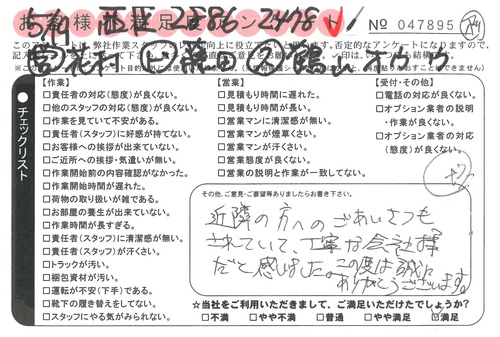 お客様ご満足度アンケート No 047895
5/19 西区 2886 2478
このアンケートは、弊社作業スタッフの
チェックリスト
【作業】
□責任者の対応(態度)が良くない。
□他のスタッフの対応(態度)が良くない。
□作業を見ていて不安がある。
□責任者(スタッフ)に好感が持てない。
□お客様への挨拶が出来ていない。
□ご近所への挨拶・気遣いが無い。
□作業開始前の内容確認がなかった。
□作業開始時間が遅れた。
□荷物の取り扱いが雑である。
□お部屋の養生が出来ていない。
□作業時間が長すぎる。
□責任者(スタッフ)に清潔感が無い。
□責任者(スタッフ)が汗くさい。
□トラックが汚い。
□梱包資材が汚い。
□運転が不安(下手)である。
□靴下の履き替えをしてない。
□スタッフにやる気がみられない。
【営業】
□見積もり時間に遅れた。
□見積もり時間が長い。
□営業マンに清潔感が無い。
□営業マンが煙草くさい。
□営業マンが汗くさい。
□営業態度が良くない。
□営業の説明と作業が一致してない。
【受付・その他】
□電話の対応が良くない。
□オプション業者の説明
・作業が良くない。
□オプション業者の対応
(態度)が良くない。
その他、ご意見・ご要望等ありましたらお書き下さい。
近隣の方へのごあいさつも
されていて、丁寧な会社様
だと感じました。この度は誠に
ありがとうございます。
☆当社をご利用いただきまして、ご満足いただけたでしょうか?
□不満 □やや不満 □普通 □やや満足 ☑満足